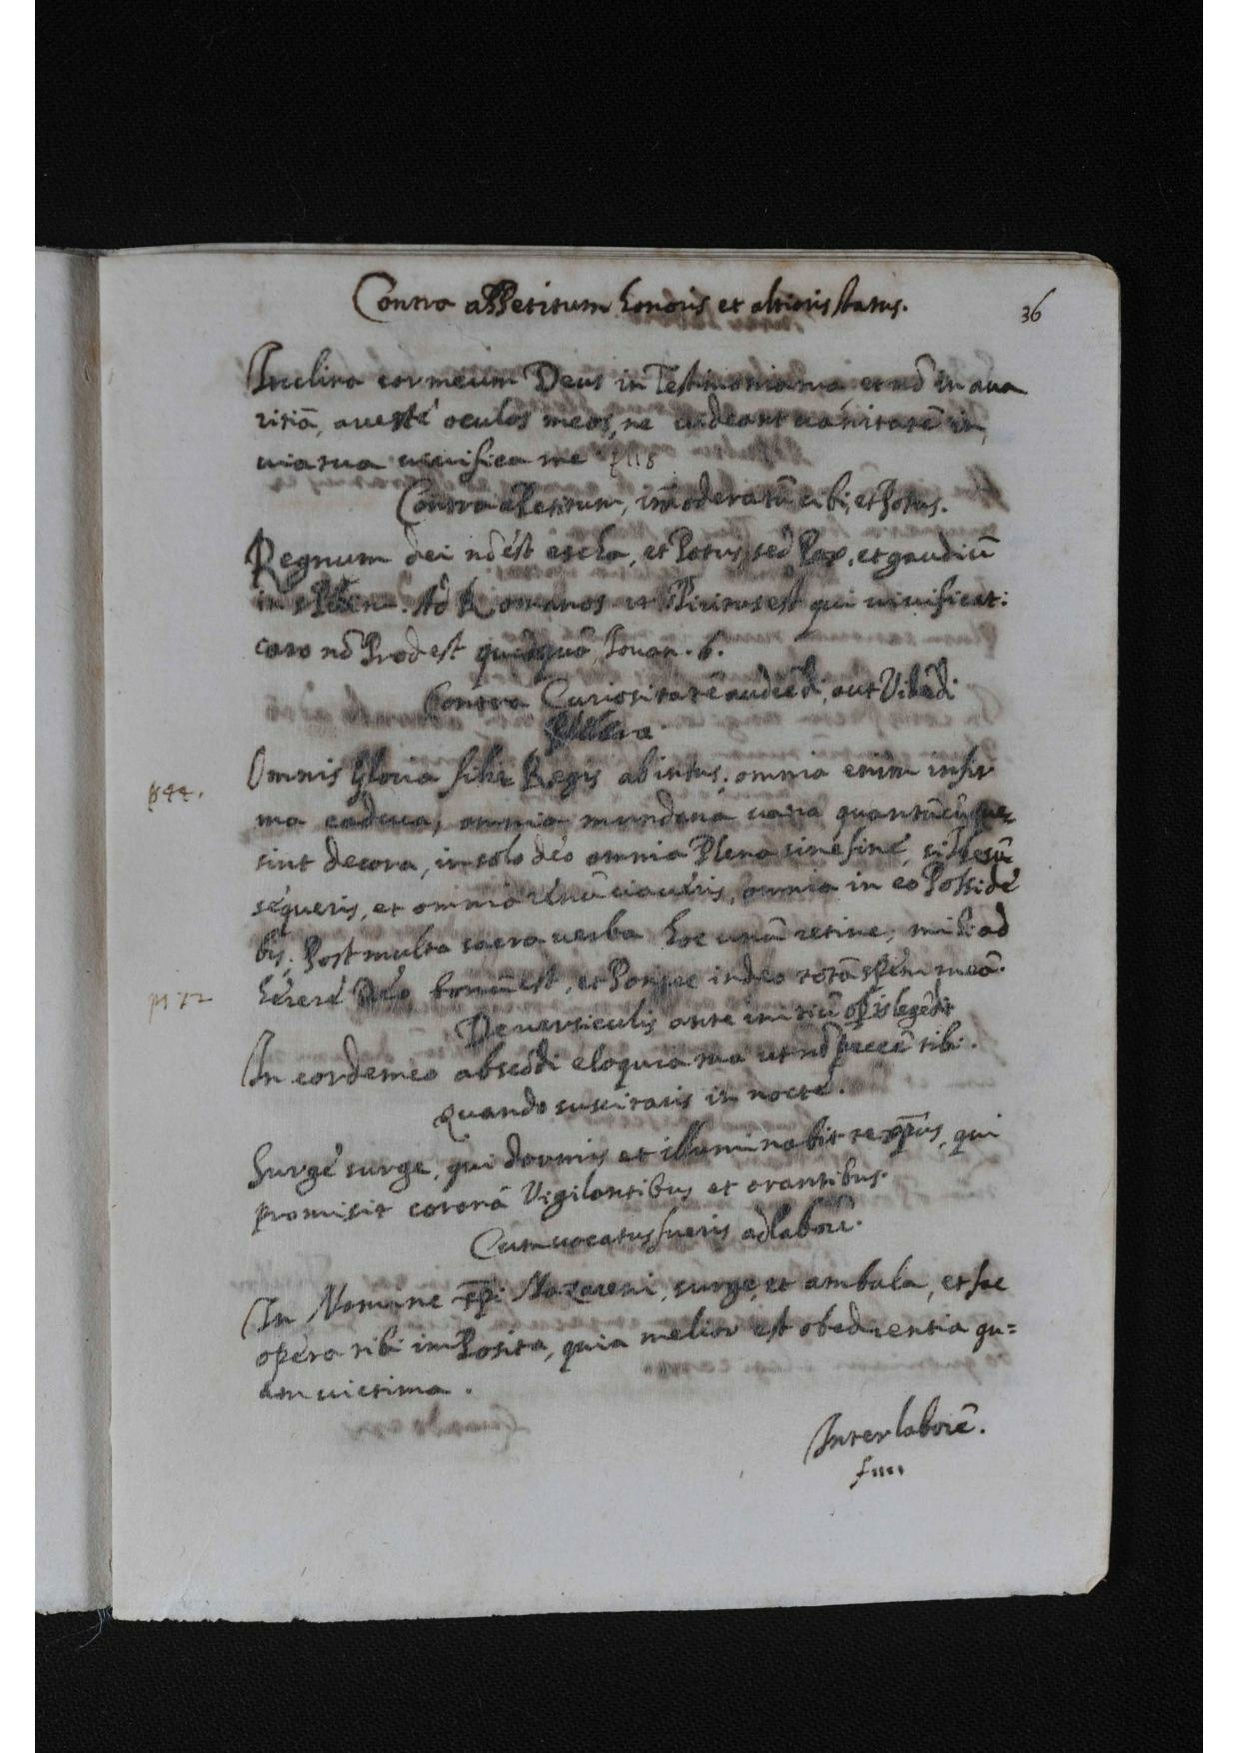 Contra appetitum honoris et altioris status.
36
Inclina cor meum Deus in Testimonia tua, et nō in aua
ritiā, auerte oculos meos, ne uideant uanitatē in
uia tua uiuifica me 118
Contra apetitum, im̄oderatū cibi, et Potus.
Regnum dei nō est escha, et Potus, sed Pax, et gaudiū
in. Ad Romanos 14 spiritus est qui uiuificat:
caro nō Prodest quidquā Iouan. 6.
Contra Curiositatē audiēdi, aut Vidēdi
Omnis Gloria filię Regis ab intus, omnia enim infir
ps 44.
ma caduca, omnia mundana uana quantūcūque
sint decora, in solo deo omnia Plena sine fine, si Iesū
sequeris, et omnia renūciaueris, omnia in eo Posside
bis. Post multa sacra uerba hoc unū retine, mihi ad
herere Deo bonū est, et Ponere in deo totā spem meā.
ps 72
De uersiculis ante initiū opis legēdis
In corde meo abscōdi eloquia tua ut nō peccē tibi.
Quando suscitaris in nocte.
Surge surge, qui dormis et illuminabit te xp̄us, qui
promisit coronā Vigilantibus et orantibus.
Cum uocatus fueris ad laborē.
In Nomine xp̄i Nazareni, surge, et ambula, et fac
opera tibi imPosita, quia melior est obedientia qu=
am uictima.
Inter laborē.